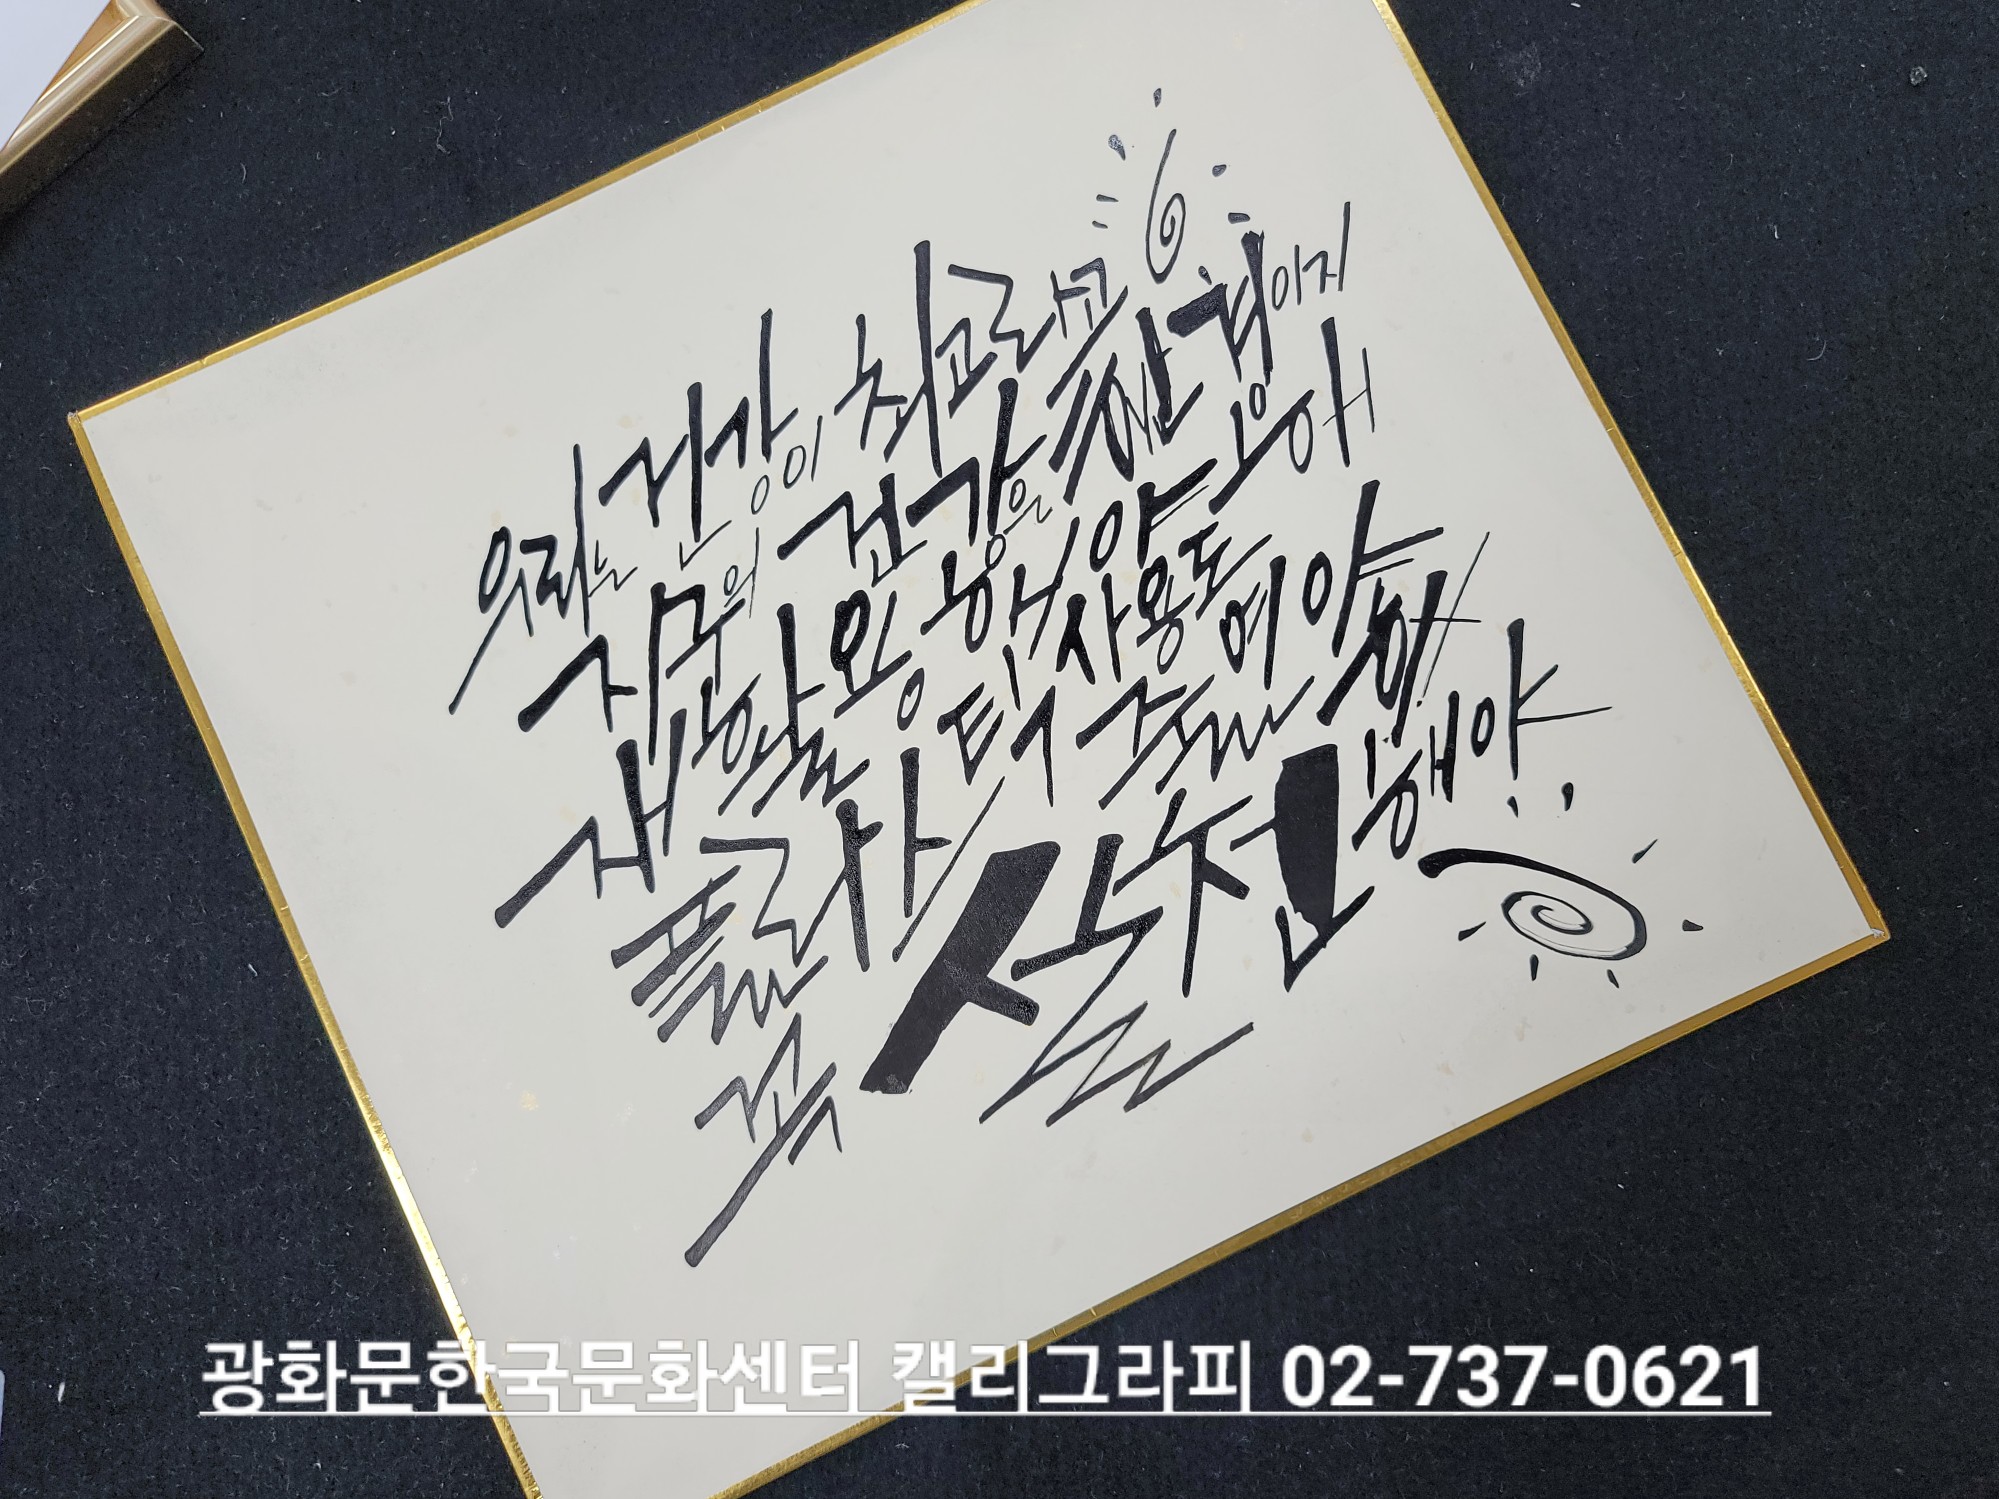 우리는 건강이 최고라고
지구의 건강은 환경이지
재활용 해야
플라스틱 사용도 줄여야해
꼭 실천해야
광화문한국문화센터 캘리그라피 02-737-0621